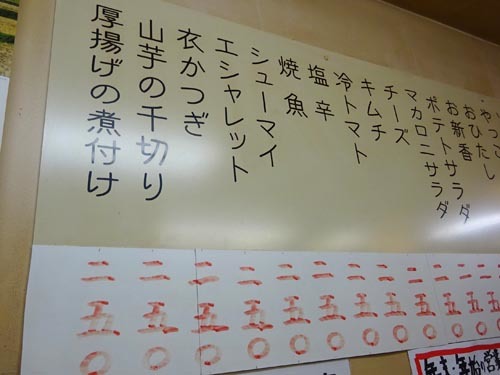 やっこ
おひたし
お新香
ポテトサラダ
マカロニサラダ
チーズ
キムチ
冷トマト
塩辛
焼魚
シューマイ
エシャレット
衣かつぎ
山芋の千切り
厚揚げの煮付け
二五〇
二五〇
二五〇
二五〇
二五〇
二五〇
二五〇
二五〇
二五〇
二五〇
二五〇
二五〇
二五〇